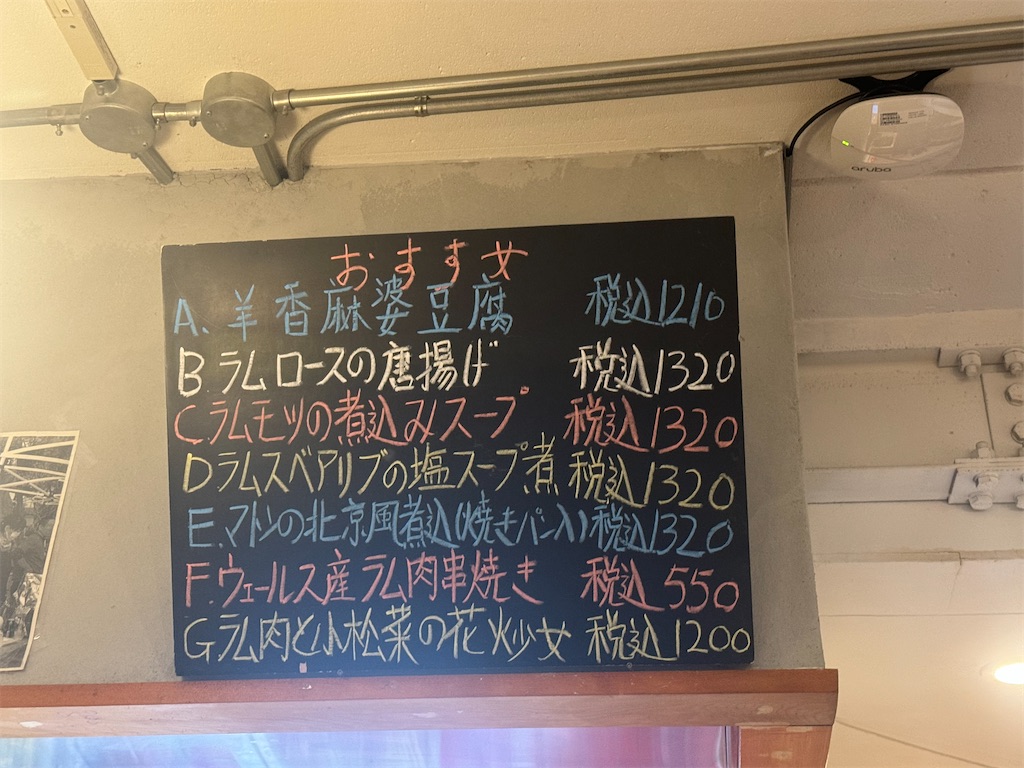 aruba
おすすめ
A、羊香麻婆豆腐 税込1210
B ラムロースの唐揚げ 税込1320
C.ラムモツの煮込みスープ 税込1320
Dラムスペアリブの塩スープ煮 税込1320
E.マトンの北京風煮込(焼きパン入) 税込1320
F.ウェールズ産ラム肉串焼き 税込550
Gラム肉と小松菜の花炒め 税込1200